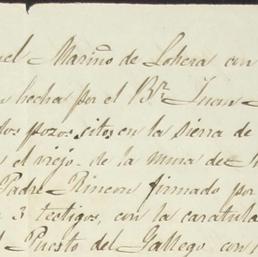 uel Mariño de Lobera con
hecha por el Br. Juan
dos pozos, sitos en la sierra de
el viejo. de la mina de
Padre Rincon firmado por
3 testigos, con la caratula
Puesto del Gallego con